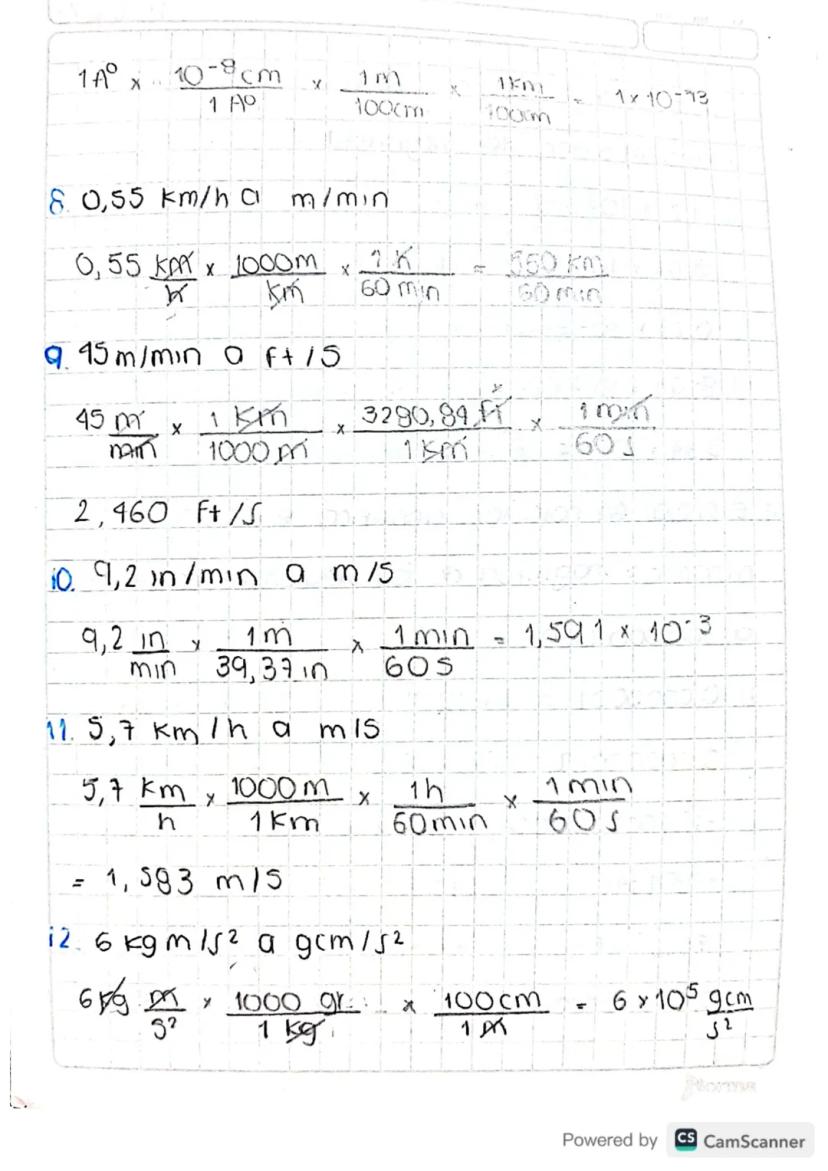 1A° x 10⁻⁸cm / 1 A° x 1m / 100cm x 1km / 100cm = 1x10⁻¹³
8. 0,55 km/h a m/min
0,55 km/h x 1000m / km x 1h / 60 min = 550 km / 60 min
9. 45m/min a ft/s
45 m/min x 1 km / 1000 m x 3280,84 ft / 1 km x 1 min / 60 s
2,460 ft/s
10. 9,2 in/min a m/s
9,2 in/min x 1m / 39,37 in x 1 min / 60s = 1,591 x 10⁻³
11. 5,7 km/h a m/s
5,7 km/h x 1000m / 1km x 1h / 60min x 1min / 60s
= 1,583 m/s
12. 6 kg m/s² a gcm/s²
6 kg m/s² x 1000 gr / 1 kg x 100cm / 1 m = 6 x 10⁵ gcm/s²
Norma
Powered by CS CamScanner